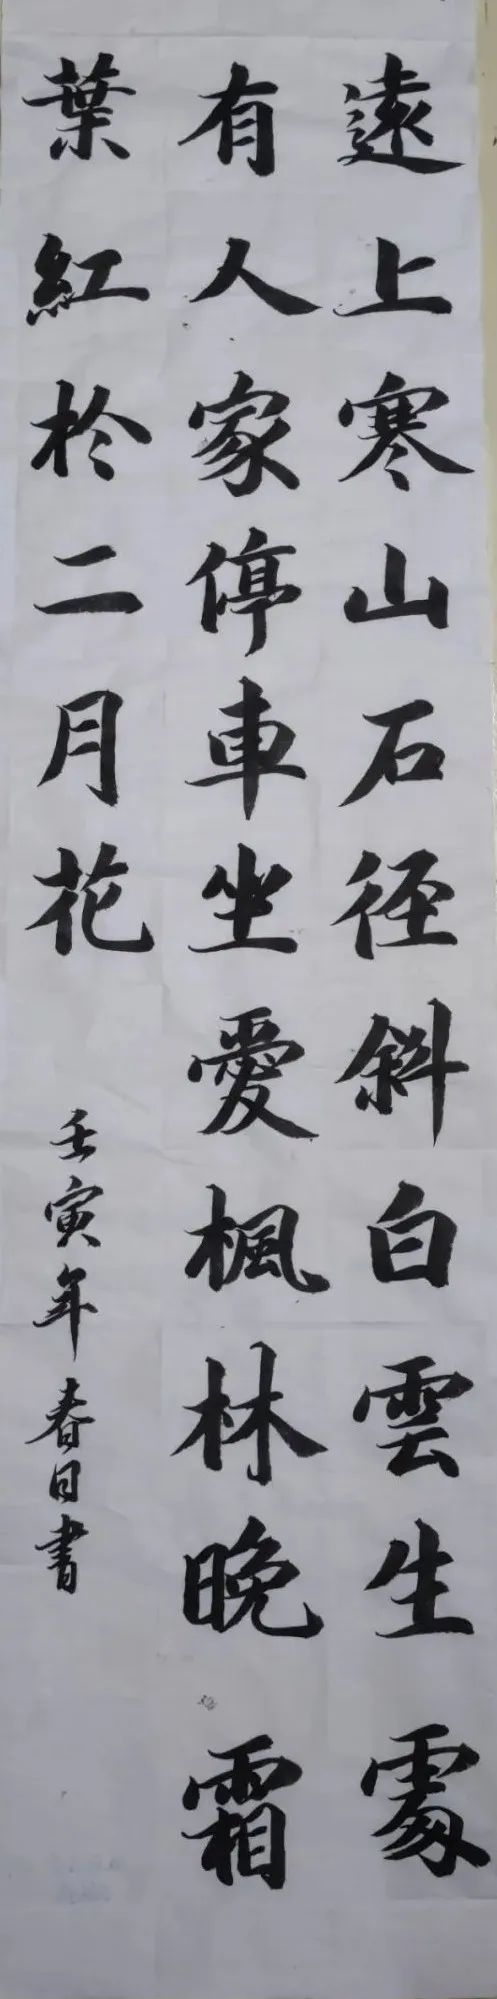 遠上寒山石径斜白雲生處
有人家停車坐愛楓林晚霜
葉紅於二月花
壬寅年春日書